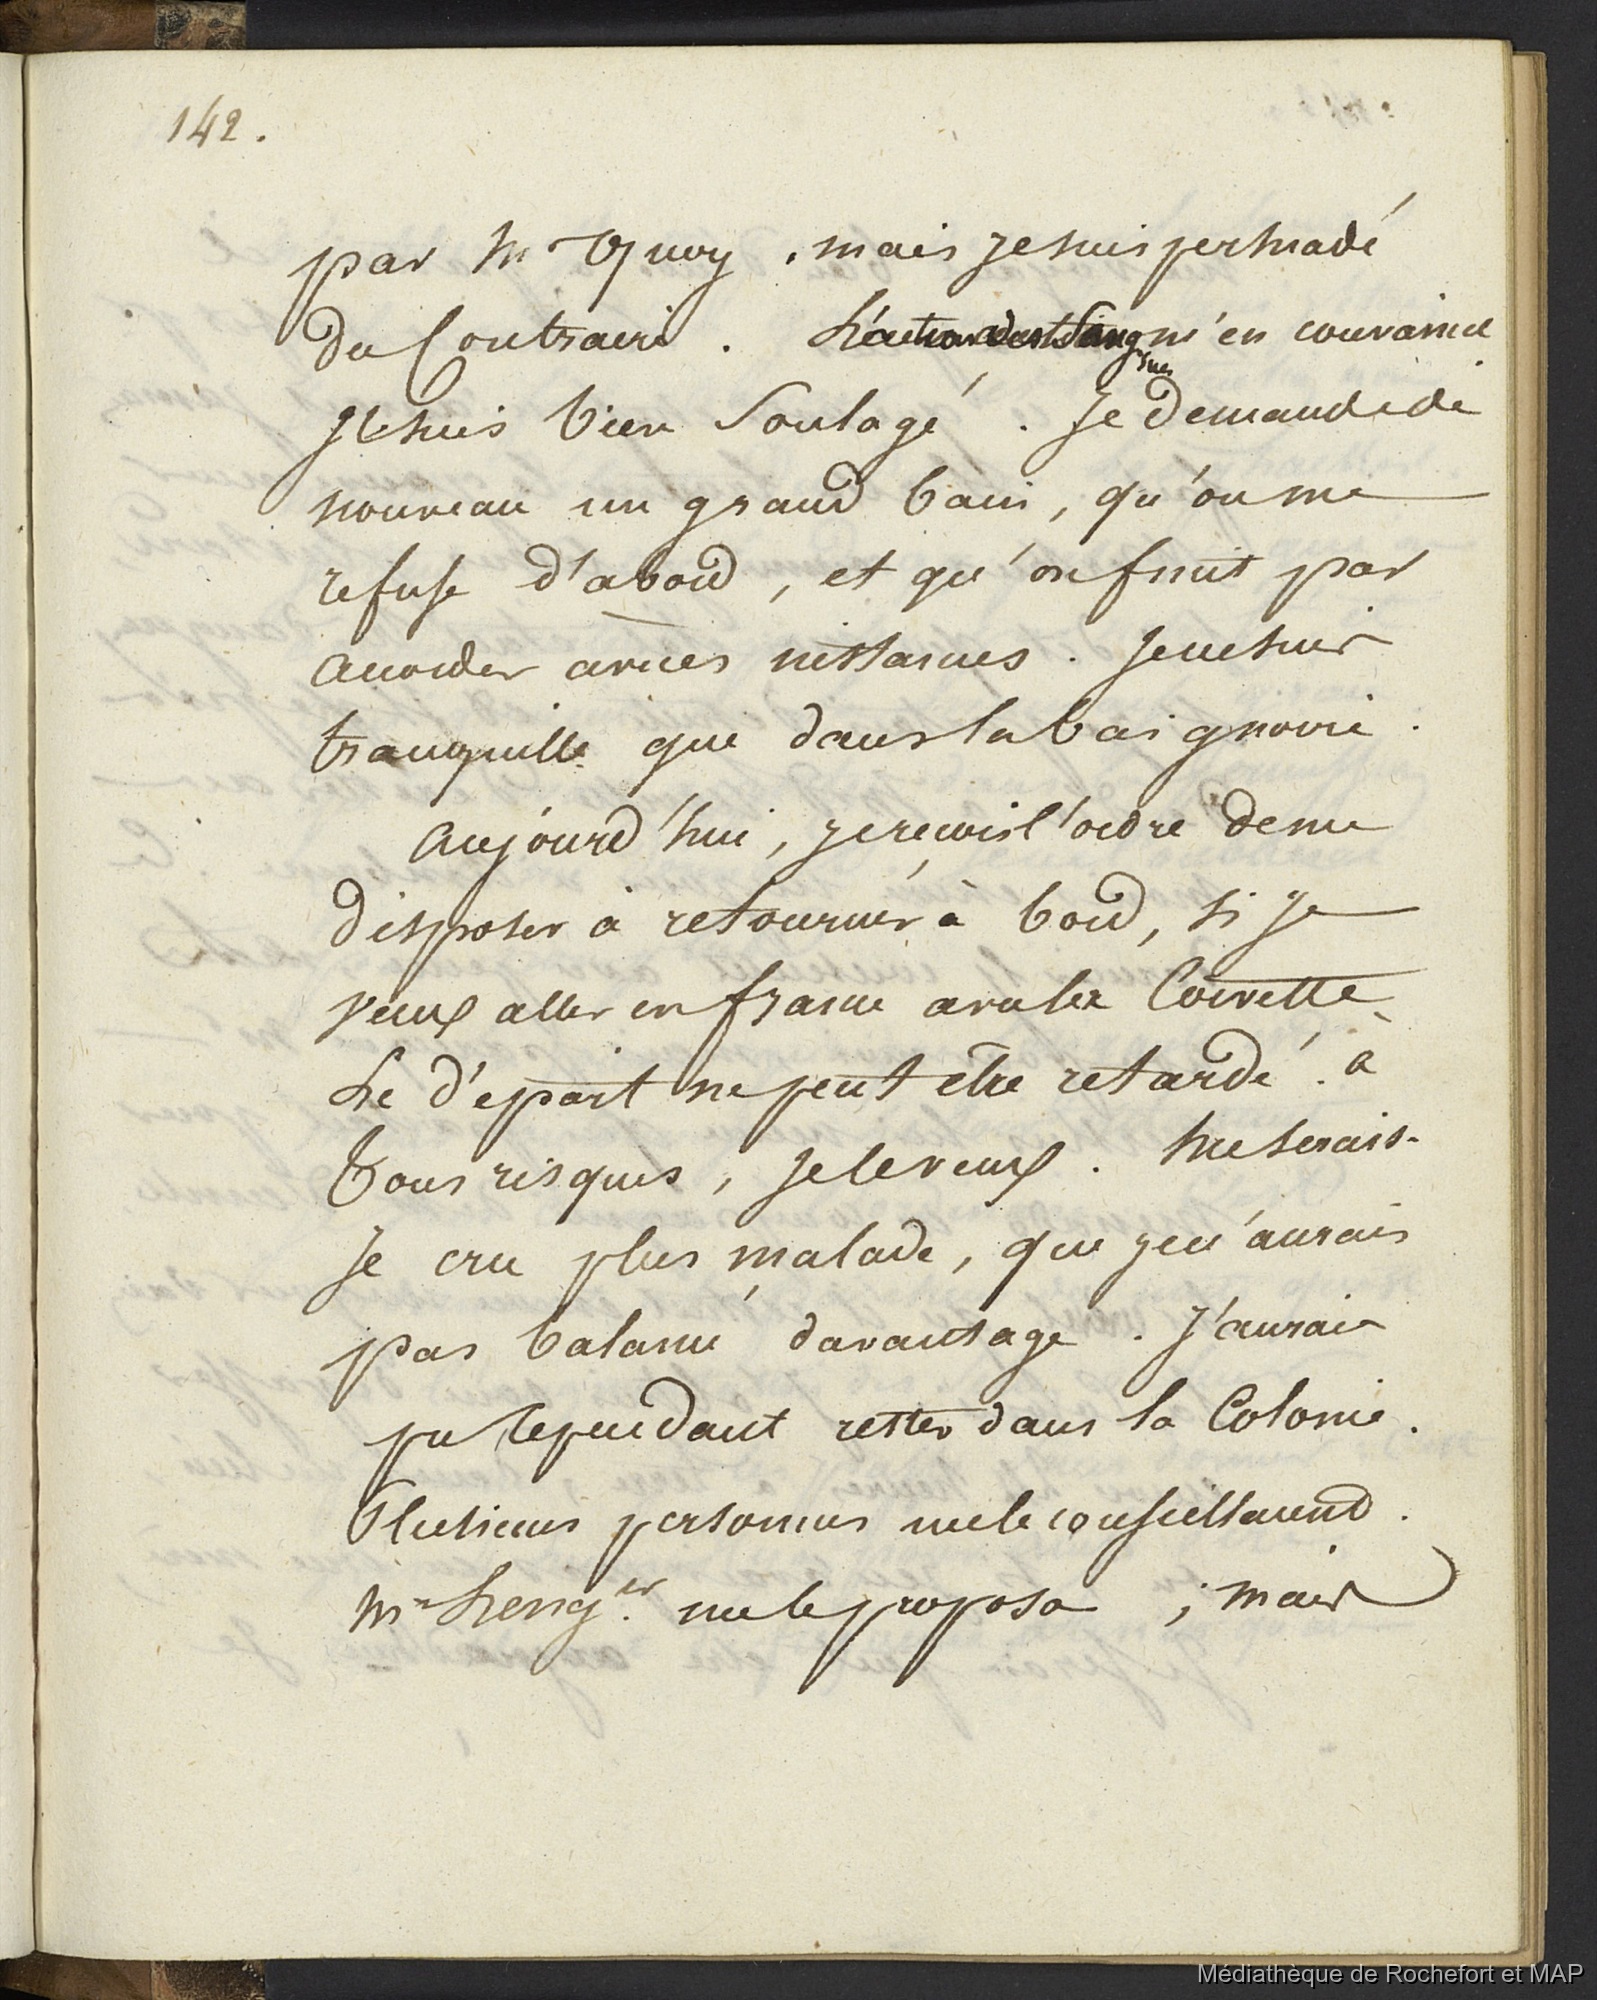 142.
par Mr Quoy, mais je suis persuadé
du Contraire. L'action des Sangsues m'en convainc
Je suis bien Soulagé. Je demande de
nouveau un grand bain, qu'on me
refuse d'abord, et qu'on finit par
accorder a mes instances. Je ne suis
tranquille que dans la baignoire.
Aujourd'hui, je reçois l'ordre de me
disposer à retourner à bord, si je
veux aller en france avec la Corvette.
Le départ ne peut être retardé. à
tous risques, je le veux. Me serais-
Je cru plus malade, que je n'aurais
pas balancé davantage. J'aurais
pu cependant rester dans la Colonie.
Plusieurs personnes me le conseillaient.
Mr me le proposa ; mais
Médiathèque de Rochefort et MAP